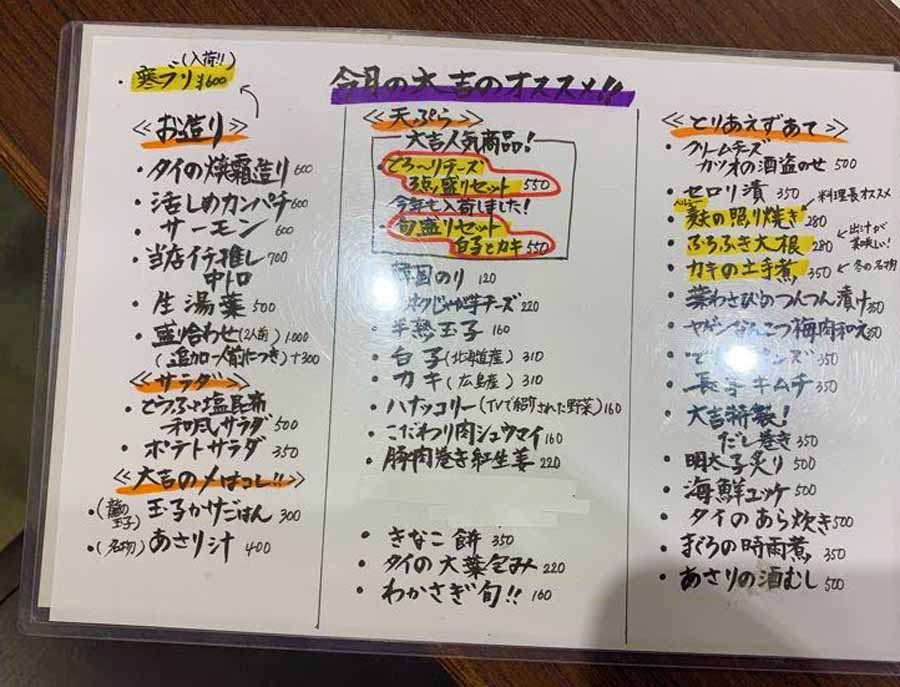 (入荷!!)
・寒ブリ ¥600
今月の大吉のオススメ!!
≪お造り≫
・タイの焼霜造り 600
・活〆めカンパチ 600
・サーモン 600
・当店イチ推し 700
中トロ
・生湯葉 500
・盛り合わせ(2人前) 1.000
(追加一人前につき) +300
≪サラダ≫
・とうふと塩昆布
和風サラダ 500
・ポテトサラダ 350
≪大吉の〆はコレ!!≫
・(龍の玉子) 玉子かけごはん 300
・(名物) あさり汁 400
≪天ぷら≫
大吉人気商品!
・とろ〜りチーズ
3点盛りセット 550
今年も入荷しました!
・旬盛りセット
白子とカキ 550
・韓国のり 120
じゃが芋チーズ 220
・半熟玉子 160
・白子(北海道産) 310
・カキ(広島産) 310
・ハナッコリー(TVで紹介された野菜) 160
・こだわり肉シュウマイ 160
・豚肉巻き紅生姜 220
・きなこ餅 350
・タイの大葉包み 220
・わかさぎ旬!! 160
≪とりあえずあて≫
・クリームチーズ
カツオの酒盗のせ 500
・セロリ漬 350
料理長オススメ
・麩の照り焼き 280
・ふろふき大根 280
出汁が
美味しい!
・カキの土手煮 350
冬の名物
・葉わさびのつんつん漬け 350
・ヤゲンなんこつ梅肉和え 350
350
・長芋キムチ 350
・大吉特製!
だし巻き 350
・明太子炙り 500
・海鮮ユッケ 500
・タイのあら炊き 500
・まぐろの時雨煮 350
・あさりの酒むし 500